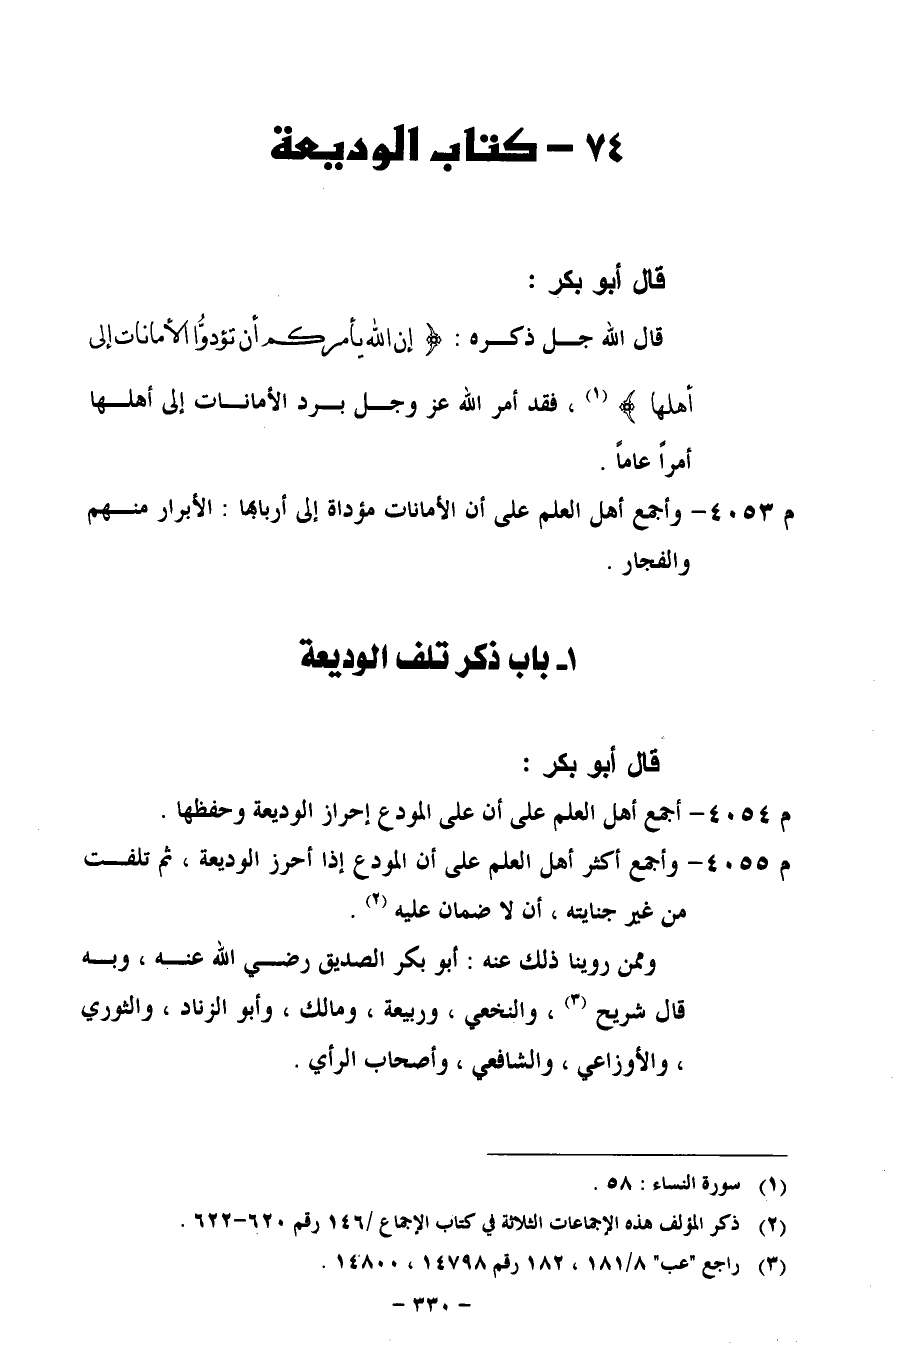 ٧٤ – كتاب الوديعة
قال أبو بكر :
قال الله جل ذكره : ﴿ إن الله يأمركم أن تؤدوا الأمانات إلى
أهلها ﴾ (١) ، فقد أمر الله عز وجل برد الأمانات إلى أهلها
أمراً عاماً .
م ٤٠٥٣– وأجمع أهل العلم على أن الأمانات مؤداة إلى أربابها : الأبرار منهم
والفجار .
١ـ باب ذكر تلف الوديعة
قال أبو بكر :
م ٤٠٥٤– أجمع أهل العلم على أن على المودع إحراز الوديعة وحفظها .
م ٤٠٥٥– وأجمع أكثر أهل العلم على أن المودع إذا أحرز الوديعة ، ثم تلفت
من غير جنايته ، أن لا ضمان عليه (٢) .
وممن روينا ذلك عنه : أبو بكر الصديق رضي الله عنه ، وبه
قال شريح (٣) ، والنخعي ، وربيعة ، ومالك ، وأبو الزناد ، والثوري
، والأوزاعي ، والشافعي ، وأصحاب الرأي .
(١) سورة النساء : ٥٨ .
(٢) ذكر المؤلف هذه الإجماعات الثلاثة في كتاب الإجماع /١٤٦ رقم ٦٢٠–٦٢٢ .
(٣) راجع "عب" ١٨١/٨ ، ١٨٢ رقم ١٤٧٩٨ ، ١٤٨٠٠ .
– ٣٣٠ –